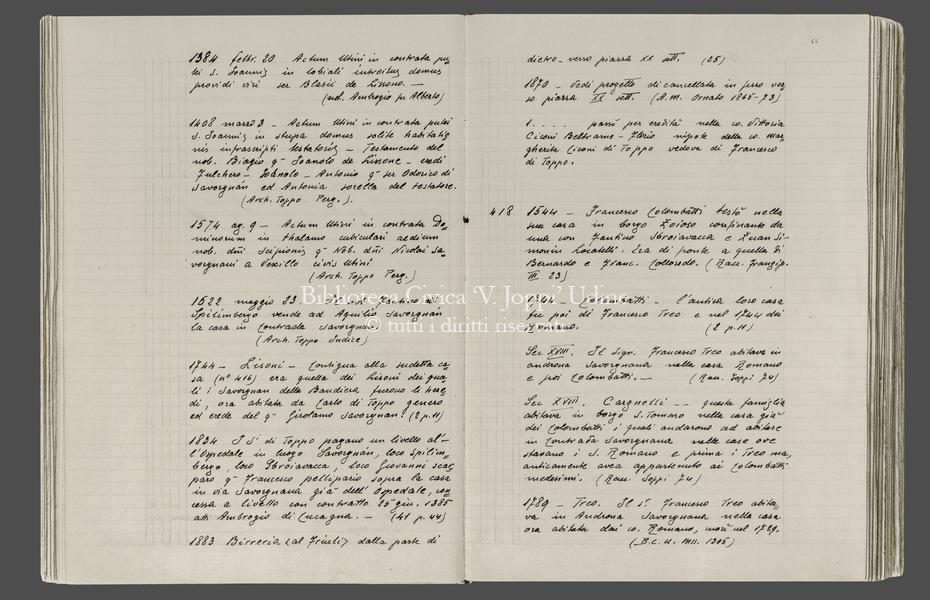 1384 febbr. 20 Actum Utini in contrata pu=
tei S. Joannis in lobiali introitus domus
providi viri ser Blasii de Lissono. —
(not. Ambrogio fu Alberto)
1408 marzo 3 — Actum Utini in contrata putei
S. Joannis in stupa domus solite habitatio
nis infrascripti testatoris — Testamento del
nob. Biagio q.m Joanolo de Lissone — eredi
Fulchero — Joanolo — Antonio q.m ser Odorico di
Savorgnan ed Antonia sorella del testatore.
(Arch. Toppo Perg.).
1574 ag. 9 — Actum Utini in contrata Do=
minorum in thalamo cubiculari aedium
nob. dni Scipionis q. nob. dni Nicolai Sa=
vorgnani a Vexillo civis Utini
(Arch. Toppo Perg.)
1622 maggio 23
Spilimbergo vende ad Aquilio Savorgnan
la casa in Contrada Savorgnana
(Arch. Toppo Indice)
1744 — Lisoni — Contigua alla sudetta ca=
sa (n° 416) era quella dei Lisoni dei qua=
li i Savorgnan della Bandiera furono li here=
di, ora abitata da Carlo di Toppo genero
ed erede del q.m Girolamo Savorgnan. (2 p. 11)
1834 I S.i di Toppo pagano un livello al=
l'Ospedale in luogo Savorgnan, loco Spilim=
bergo, loco Sbroiavacca, loco Giovanni scar=
paro q.m Francesco pellipario sopra la casa
in via Savorgnana già dell'Ospedale, con=
cessa a livello con contratto 25 giu. 1385
atti Ambrogio di Cucagna. — (41 p. 44)
1883 Birreria «al Friuli» dalla parte di
66
dietro — verso piazza XX sett. (25)
1870 — Vedi progetto di cancellata in ferro ver=
so piazza XX sett. (A.M. Ornato 1865-73)
1.... passò per eredità nella co. Vittoria
Ciconi Beltrame — Florio nipote della co. Mar=
gherita Ciconi di Toppo vedova di Francesco
di Toppo.
418 1544 — Francesco Colombatti testò nella
sua casa in borgo Zoioso confinante da
una con Fantino Sbroiavacca e Zuan Si=
monin Locatelli. Era di fronte a quella di
Bernardo e Franc. Colloredo. (Racc. Frangip.
III 23)
1744 — Colombatti — l'antica loro casa
fu poi di Francesco Treo e nel 1744 dei
Romano. (2 p. 11)
Sec XVIII. Il Sign. Francesco Treo abitava in
androna Savorgnana nella casa Romano
e poi Colombatti. — (Racc. Joppi 74)
Sec XVIII. Cargnelli — questa famiglia
abitava in borgo S. Tomaso nella casa già
dei Colombatti i quali andarono ad abitare
in Contrada Savorgnana nelle case ove
stavano i S. Romano e prima i Treo ma
anticamente avea appartenuto ai Colombatti
medesimi. (Racc. Joppi 74)
1789 — Treo. Il S.r Francesco Treo abita=
va in Androna Savorgnana nella casa
ora abitata dai co. Romano, morì nel 1789.
(B.C.U. MII. 1305)
Biblioteca Civica 'V. Joppi' Udine
© tutti i diritti riservati